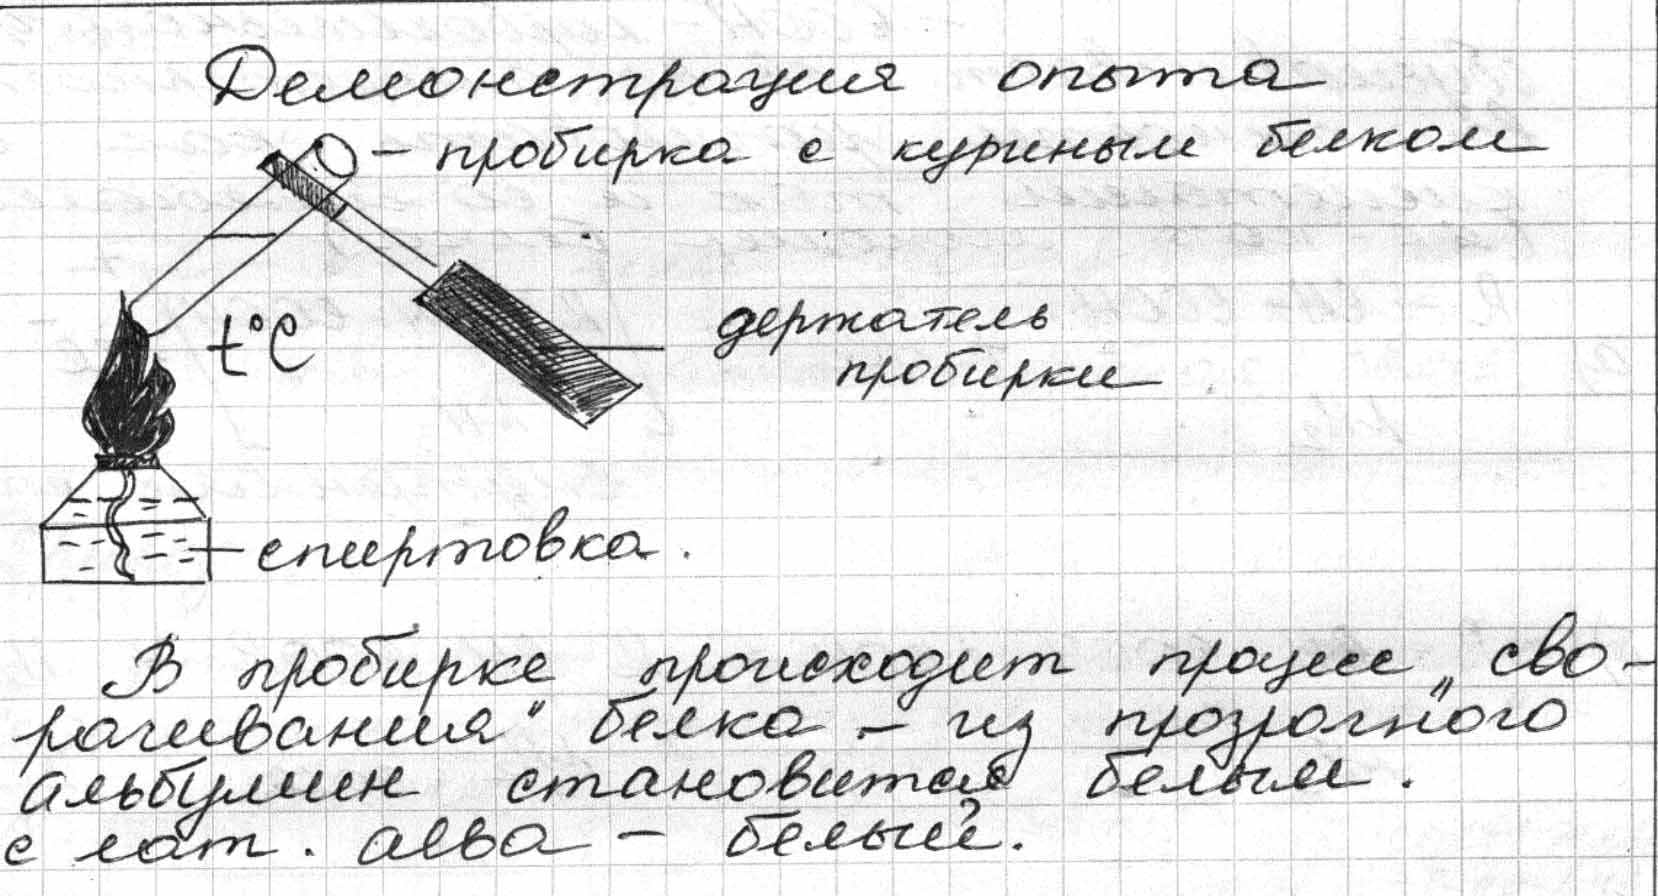 Демонстрация опыта
– пробирка с куриным белком
t°C
держатель
пробирки
спиртовка.
В пробирке происходит процесс „сво-
рачивания“ белка – из прозрачного
альбумин становится белым.
с лат. альва – белый.